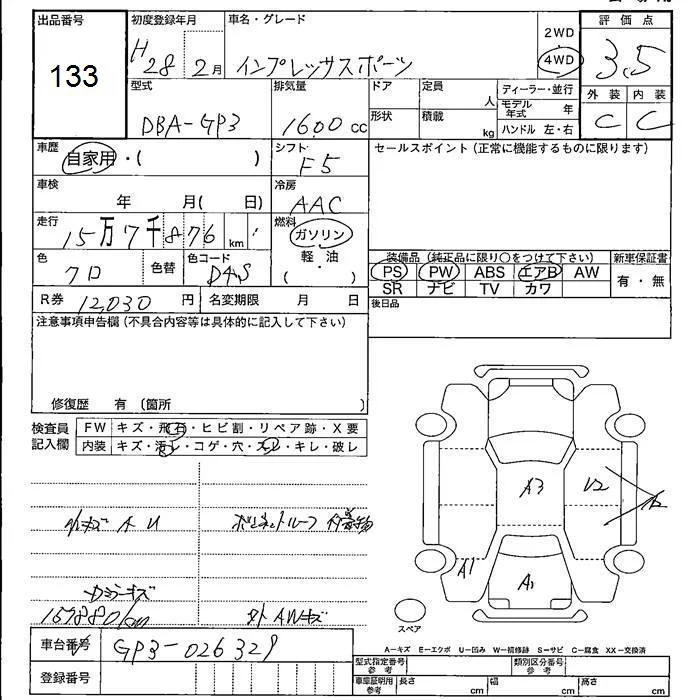 出品番号 初度登録年月 車名・グレード 評価点
133 H28 2月 インプレッサスポーツ 2WD 4WD 3.5
型式 排気量 ドア 定員 人 ディーラー・並行 外装 内装
DBA-GP3 1600 cc 形状 積載 kg モデル年式 年 ハンドル 左・右 C C
車歴 自家用・( ) シフト F5 セールスポイント(正常に機能するものに限ります)
車検 年 月( 日) 冷房 AAC
走行 15万7千876 km 燃料 ガソリン・軽油 ( )
装備品(純正品に限り○をつけて下さい) 新車保証書
色 クロ 色替 色コード D4S PS PW ABS エアB AW 有・無
SR ナビ TV カワ
R券 12,030 円 名変期限 月 日 後日品
注意事項申告欄(不具合内容等は具体的に記入して下さい)
修復歴 有 (箇所 )
検査員記入欄 FW キズ・飛石・ヒビ割・リペア跡・X要
内装 キズ・汚レ・コゲ・穴・スレ・キレ・破レ
A3 U2
小キズ A U ボンネットルーフ 付着物
A1 A1
157880km 外 AWキズ
スペア
車台番号 GP3-026329
A-キズ E-エクボ U-凹み W-補修跡 S-サビ C-腐食 XX-交換済
登録番号
型式指定番号 参考 類別区分番号 参考
車庫証明用 参考 長さ cm 幅 cm 高さ cm